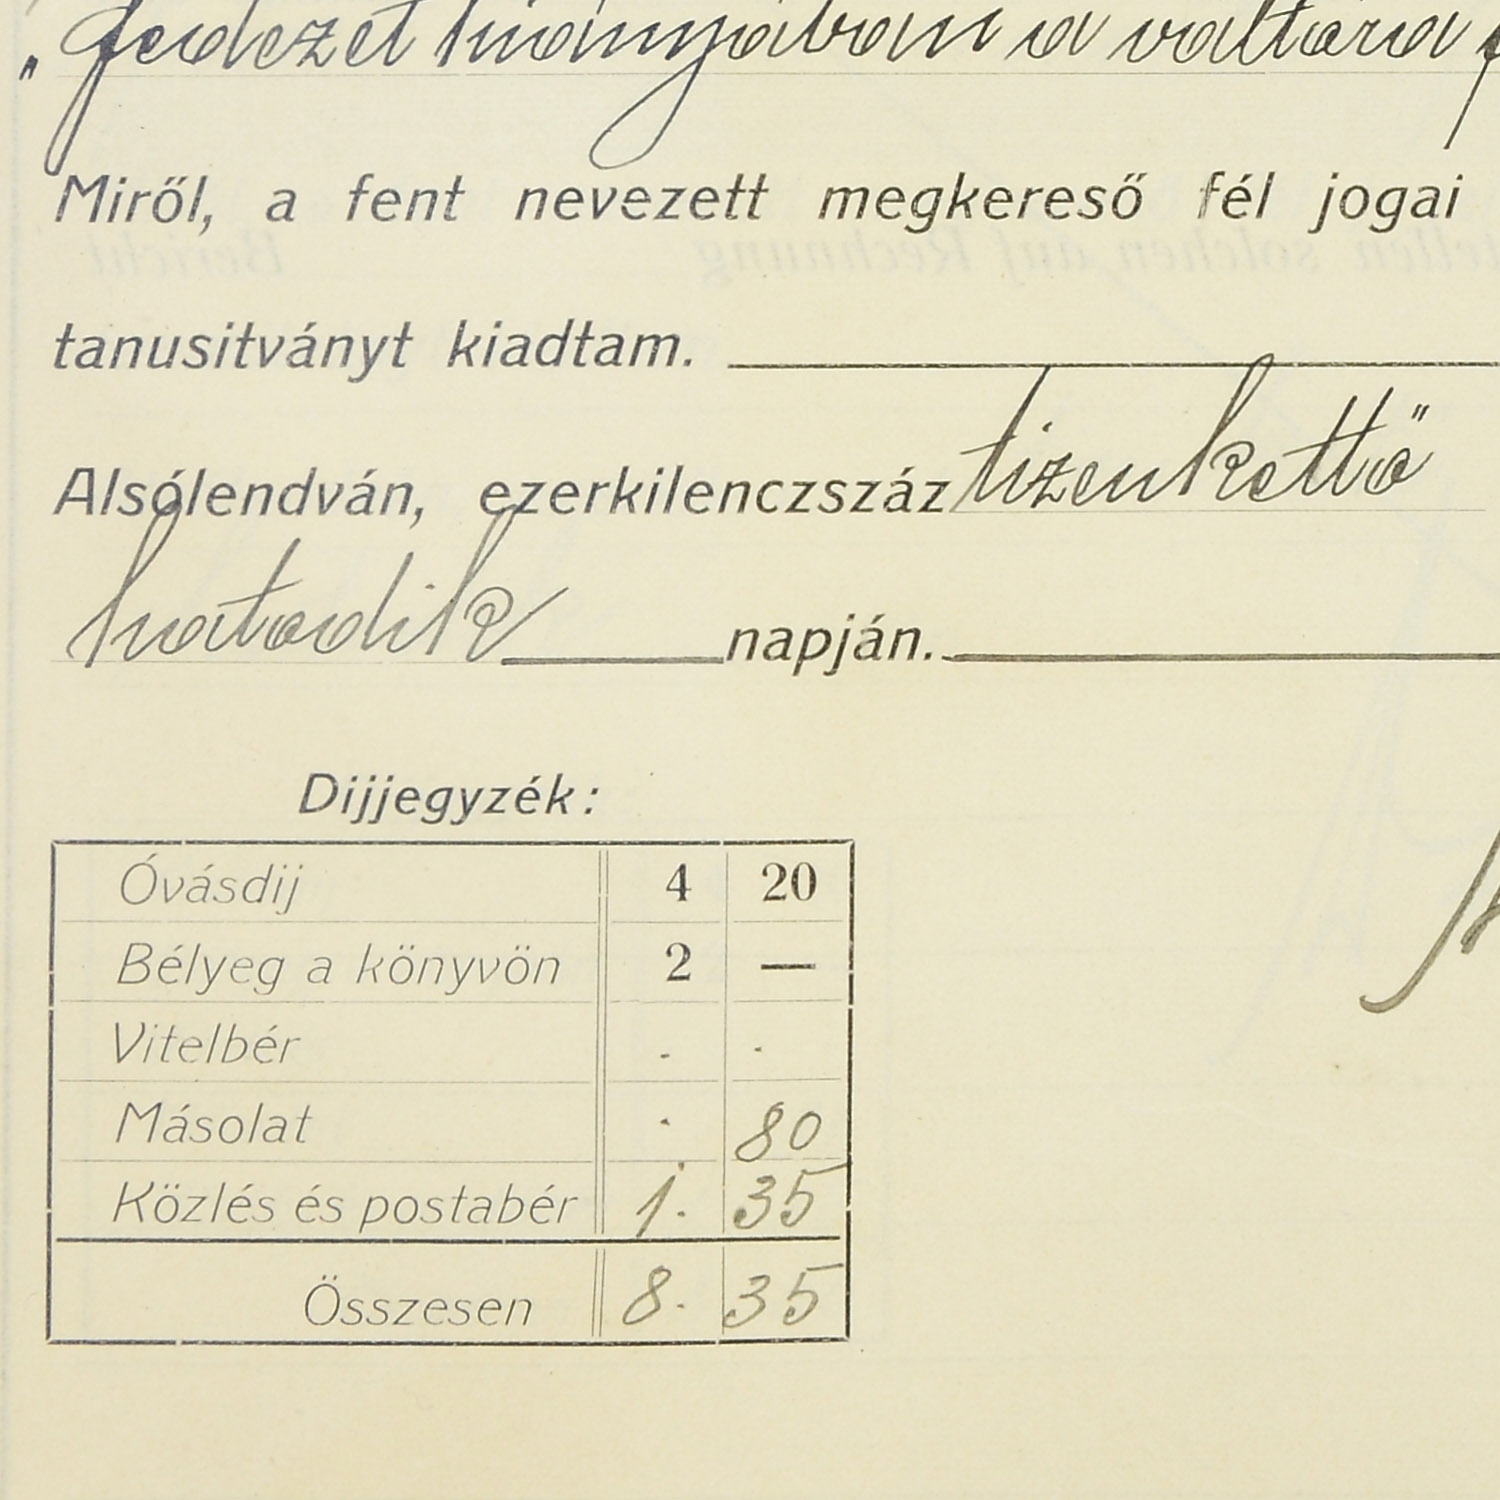 „fedezet hiányában a váltóra
Miről, a fent nevezett megkereső fél jogai
tanusitványt kiadtam.
Alsólendván, ezerkilenczszáz tizenkettő
hatodik napján.
Dijjegyzék:
Óvásdij 4 20
Bélyeg a könyvön 2 —
Vitelbér . .
Másolat . 80
Közlés és postabér 1. 35
Összesen 8. 35